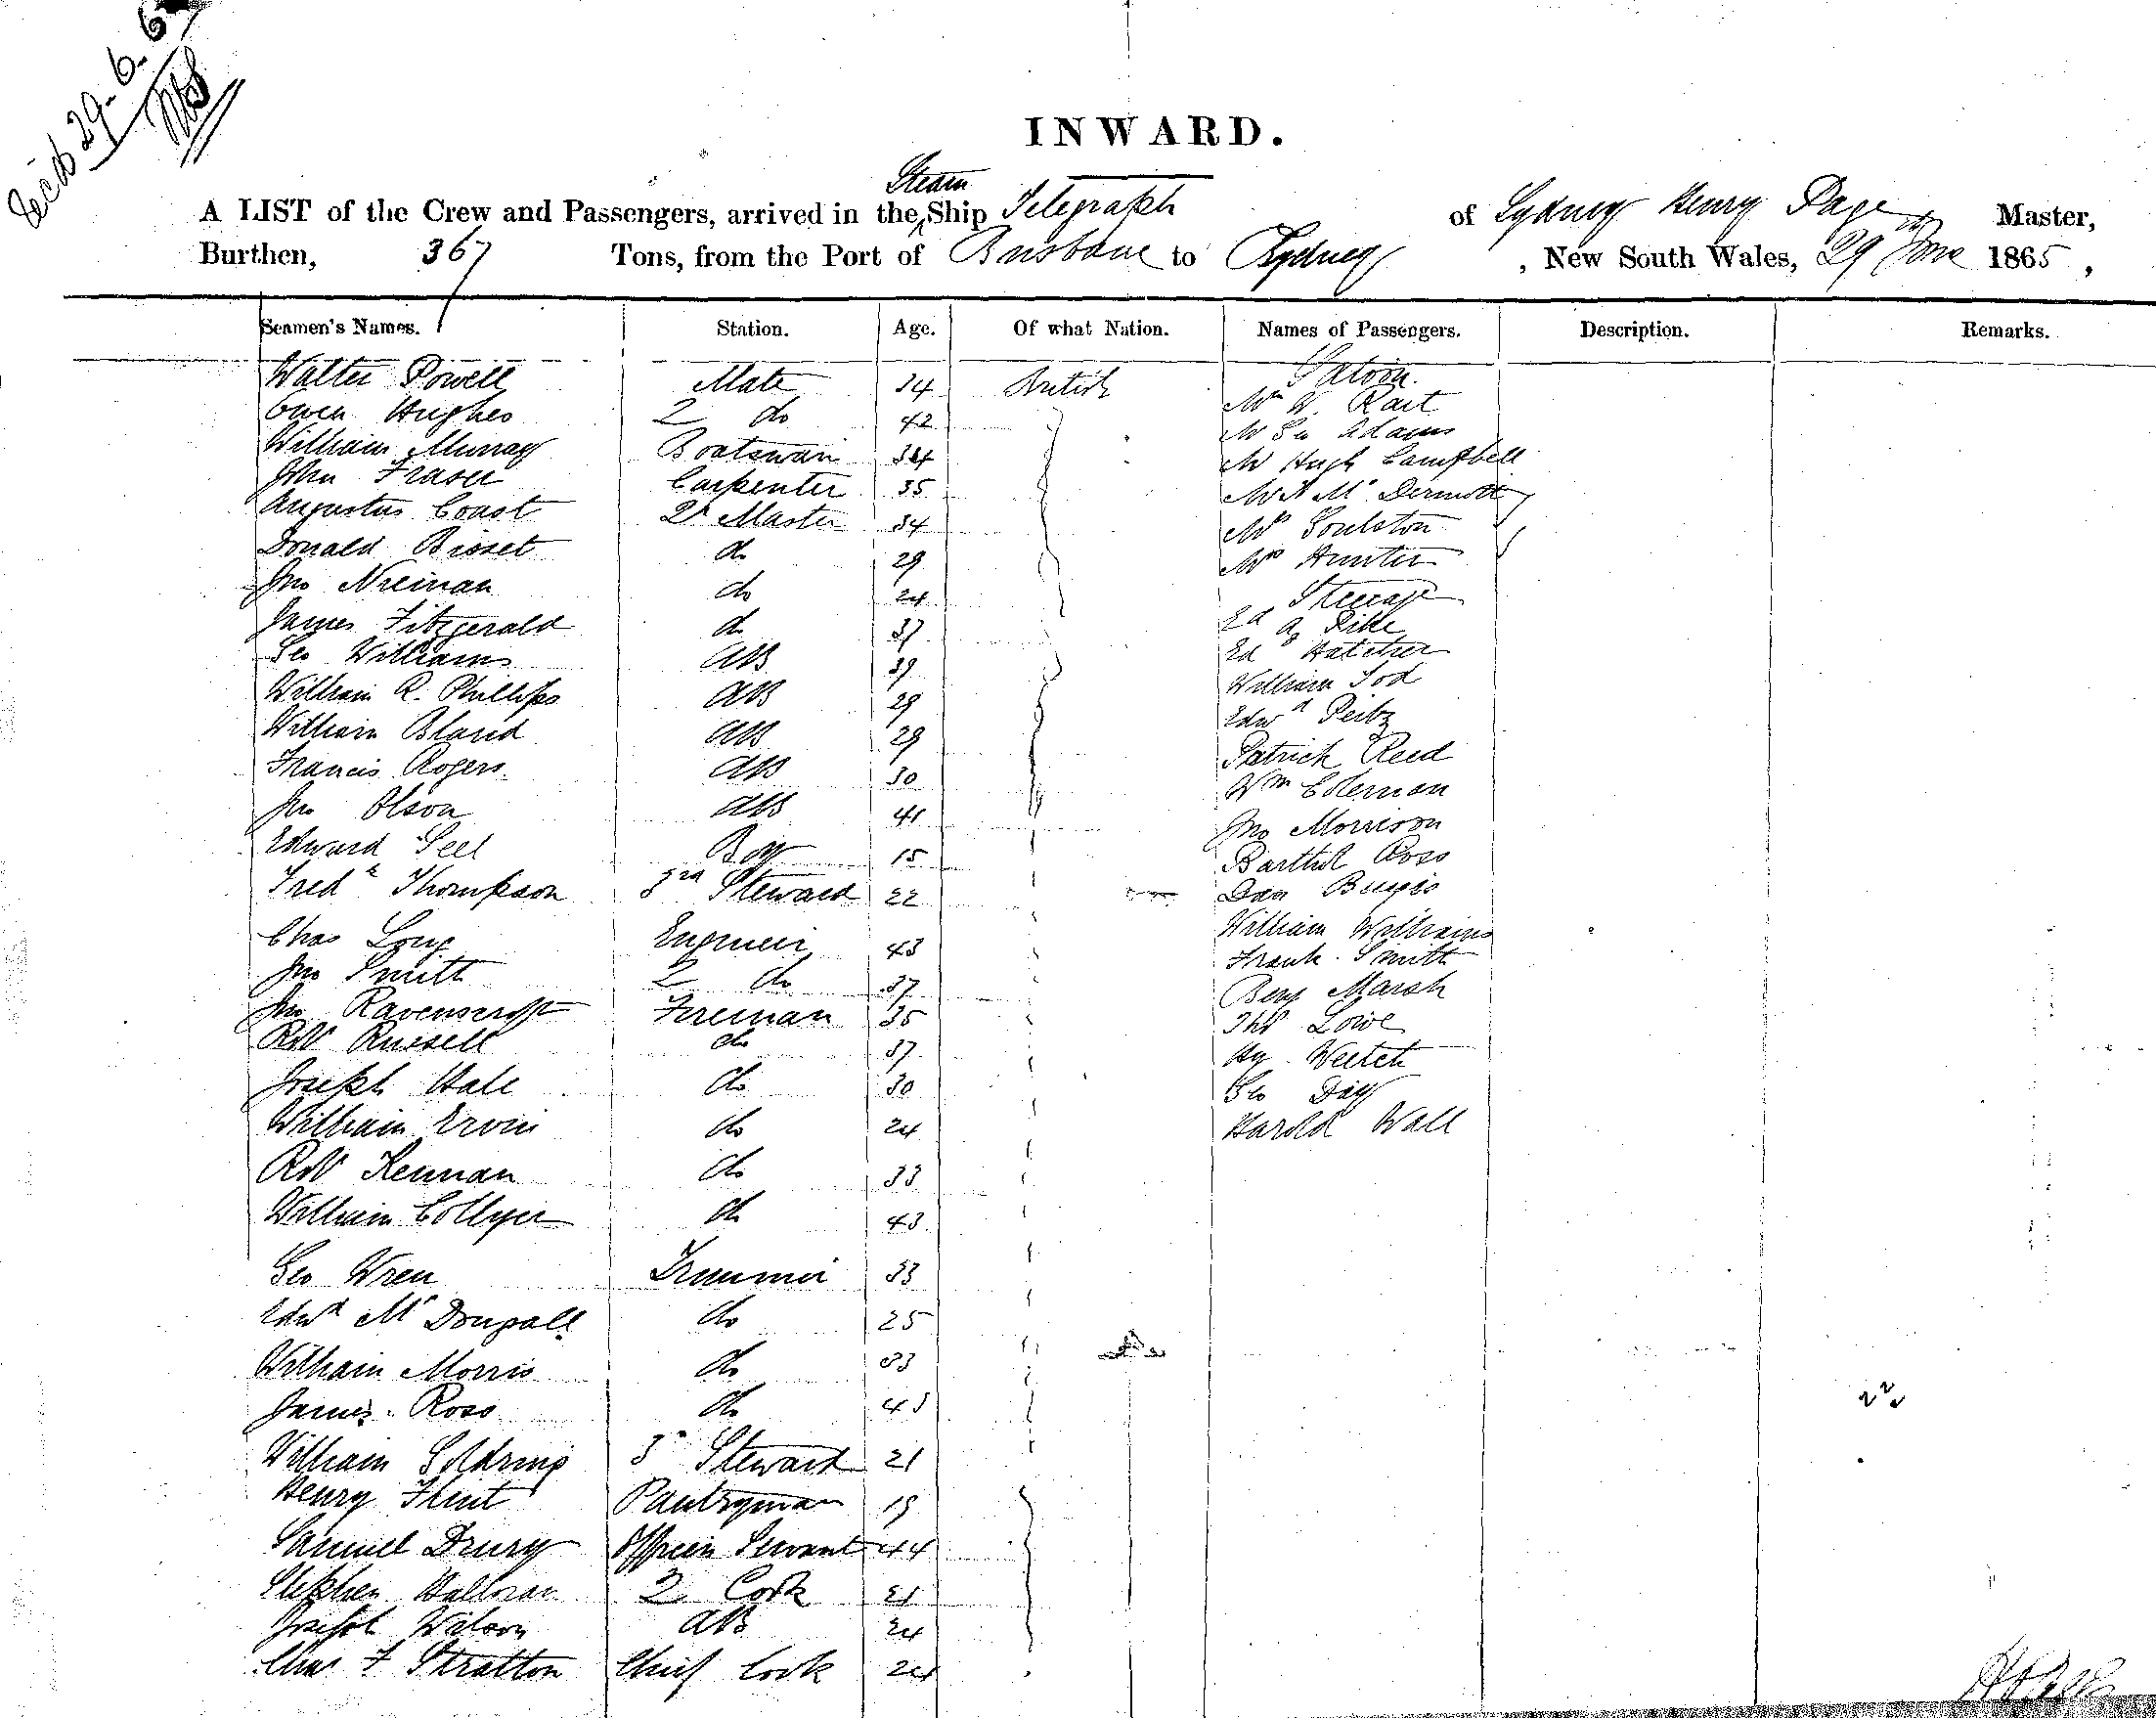 29.6.65
INWARD.
Steam
A LIST of the Crew and Passengers, arrived in the Ship Telegraph of Sydney Henry Page Master,
Burthen, 367 Tons, from the Port of Brisbane to Sydney, New South Wales, 29 June 1865,
Seamen's Names. Station. Age. Of what Nation. Names of Passengers. Description. Remarks.
Walter Powell Mate 34 British Saloon
Owen Hughes 2 do 42 W.
William Murray Boatswain 34 Mr Geo Adams
John Fraser Carpenter 35 Mr Hugh Campbell
Augustus Coast Master 34 Mr A Mc Dermott
Donald Bisset do 29 Mr Soulston
Jno do 24 Mrs Hunter
James Fitzgerald do 37 Steerage
Geo Williams AB 39 Pike
William R. Phillips AB 29 Ed Hatcher
William Bland AB 29 William
Francis Rogers AB 30 Edwd
Jno Olson AB 41 Patrick Reed
Edward Seel Boy 15 Wm Coleman
Fredk Thompson 3rd Steward 22 Jno Morrison
Chas Long Engineer 43 Ross
Jno Smith 2 do 37 Dan
Jno Ravenscroft Fireman 35 William Williams
Robt Russell do 37 Frank Smith
Joseph Hale do 30 Benj Marsh
William Ervin do 24 Thos Lowe
Robt Kennan do 33 Hy
William Collyer do 43 Geo Day
Geo Wren Trimmer 33 Harold Wall
Edwd Mc Dougall do 25
William Morris do 33
James Ross do 22
William Goldring Steward 21
Henry Flint Pantryman 19
Samuel Drury Officers Servant 44
Stephen Halloran 2 Cook 21
Joseph Watson AB 24
Chas F Stratton Chief Cook 24